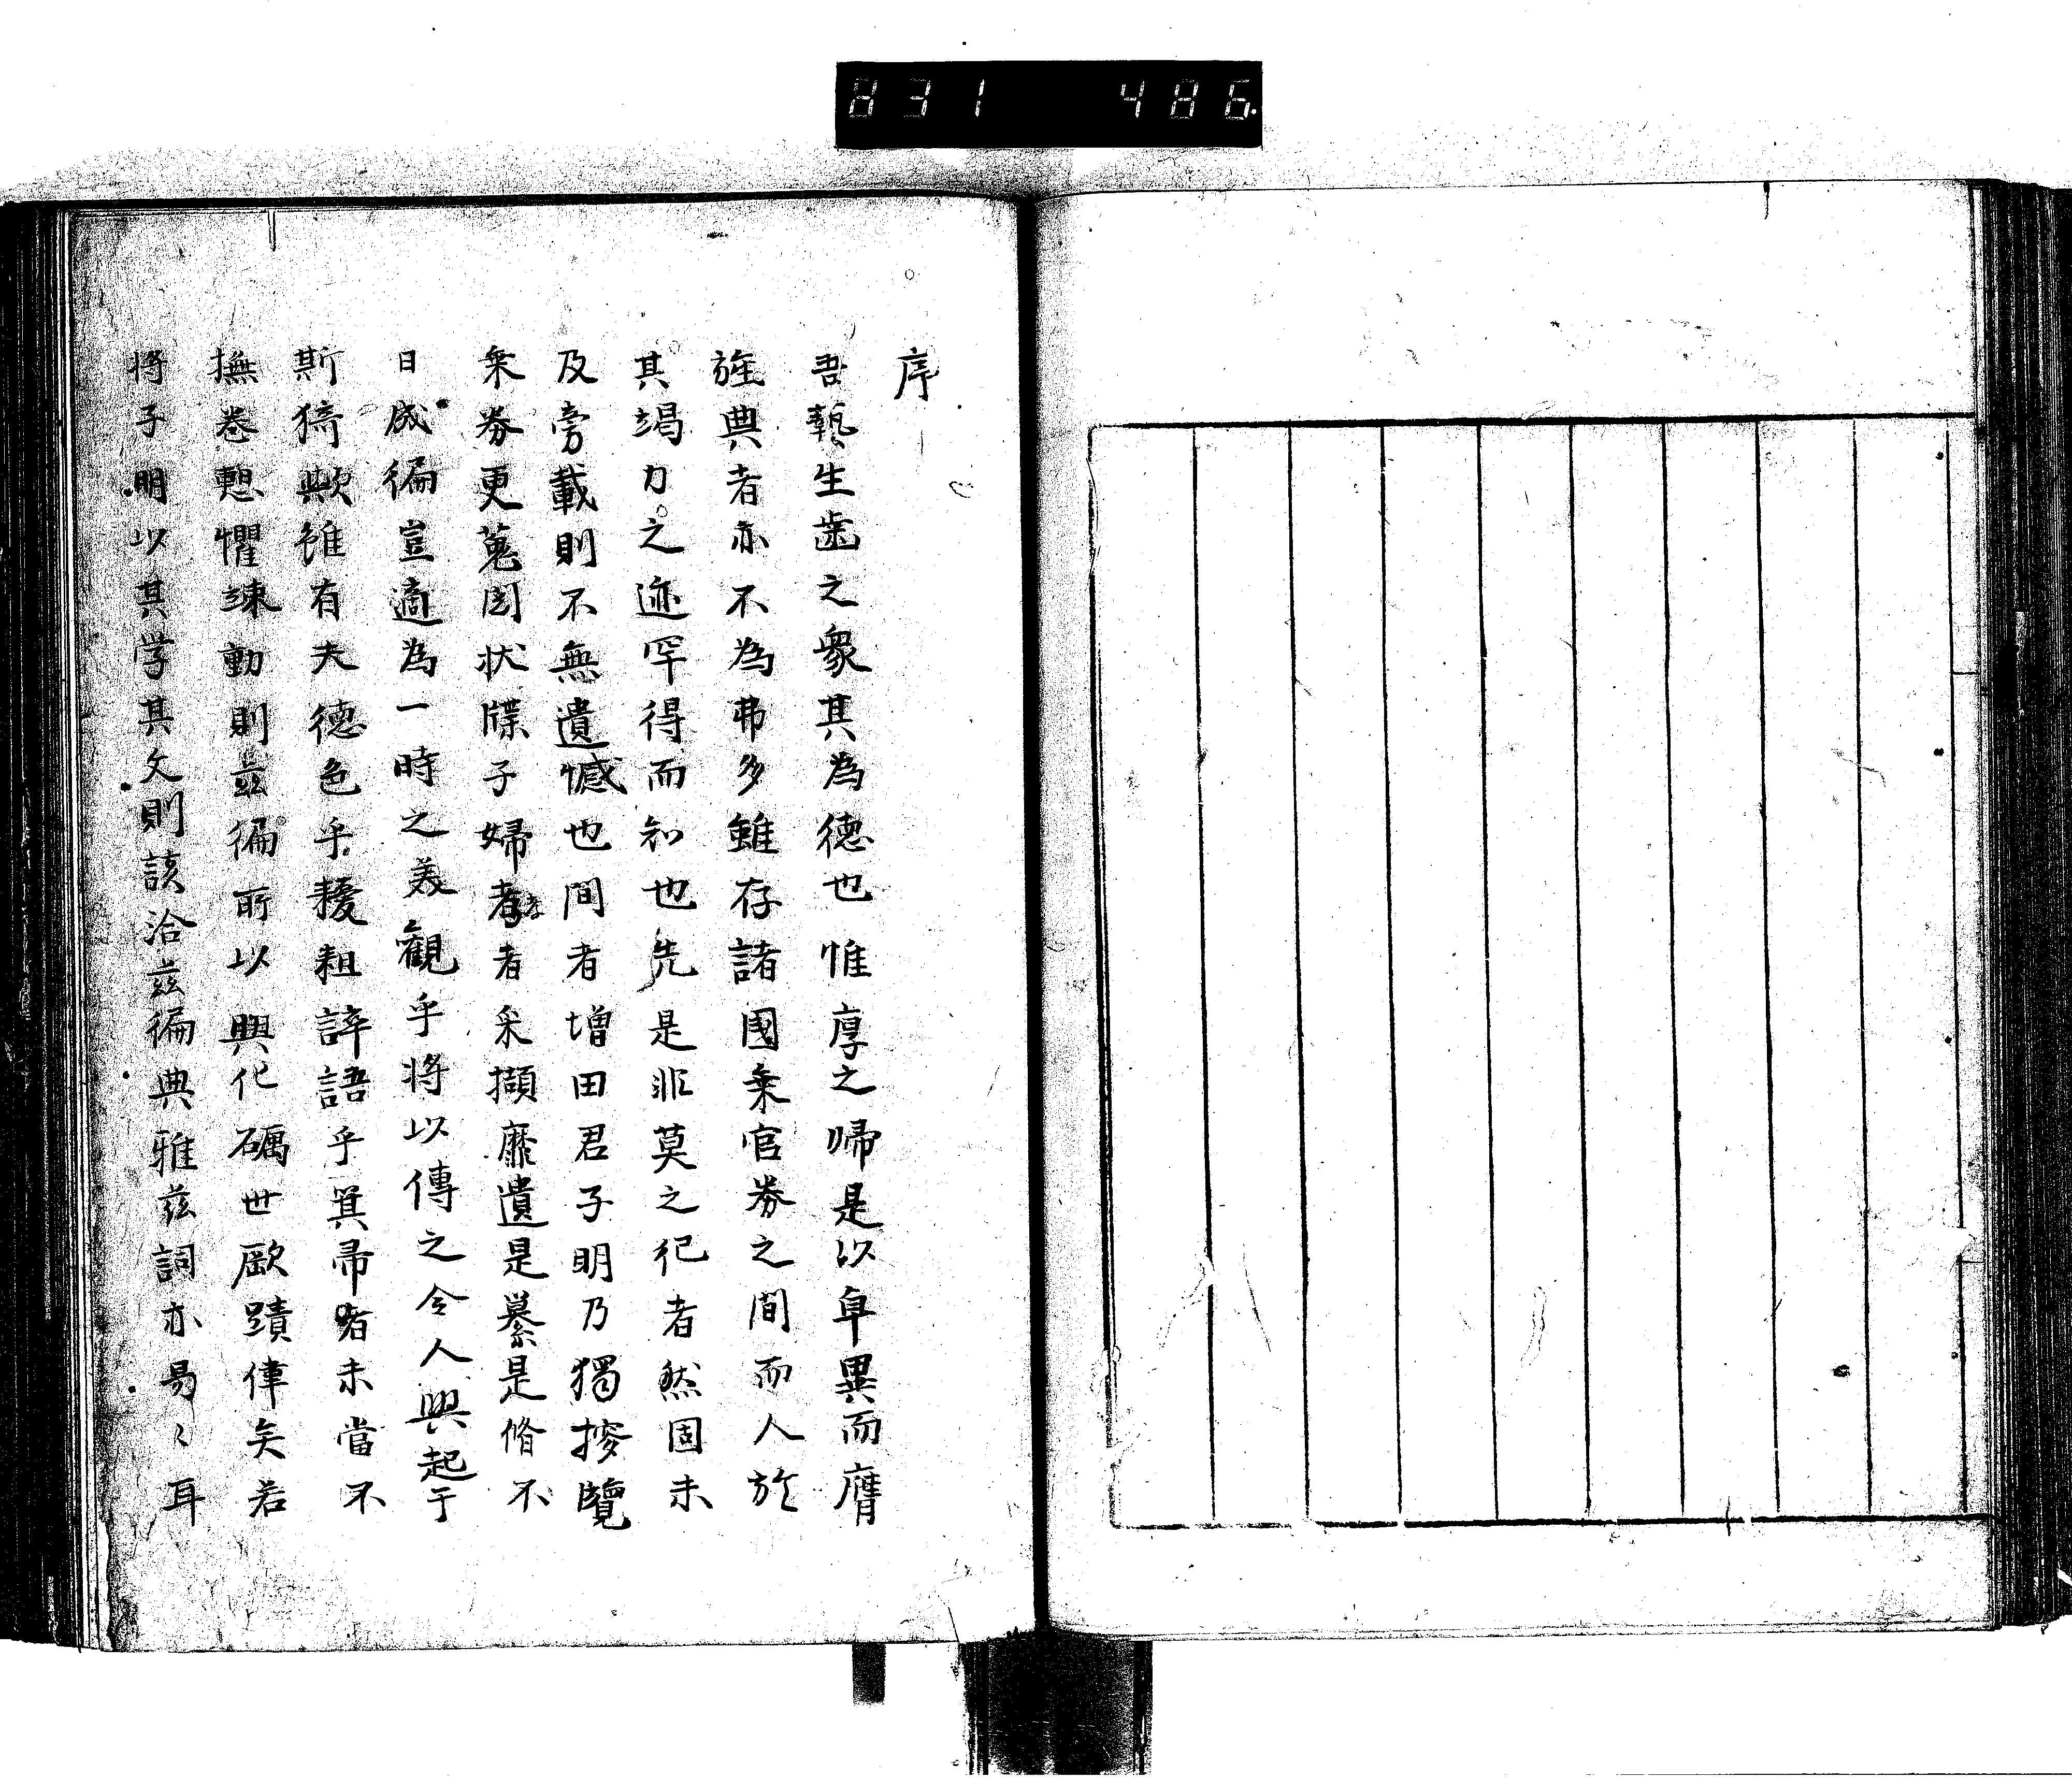 831 486.
序
吾藝生歯之衆其為德也惟厚之帰是以卓異而膺
旌典者亦不為弗多雖存諸國乗官券之間而人於
其竭力之迹罕得而知也先是非莫之紀者然固未
及旁載則不無遺憾也間者增田君子明乃獨搜覽
乗券更蒐図状牒子婦孝者采擷靡遺是纂是脩不
日成徧豈適為一時之美觀乎将以傳之令人興起于
斯猗歟雖有夫德色乎耰耝誶語乎箕帚者未當不
撫巻慙懼竦動則茲徧所以興化礪世厥蹟偉矣若
将子明以其学其文則該洽茲徧典雅茲詞亦易〻耳